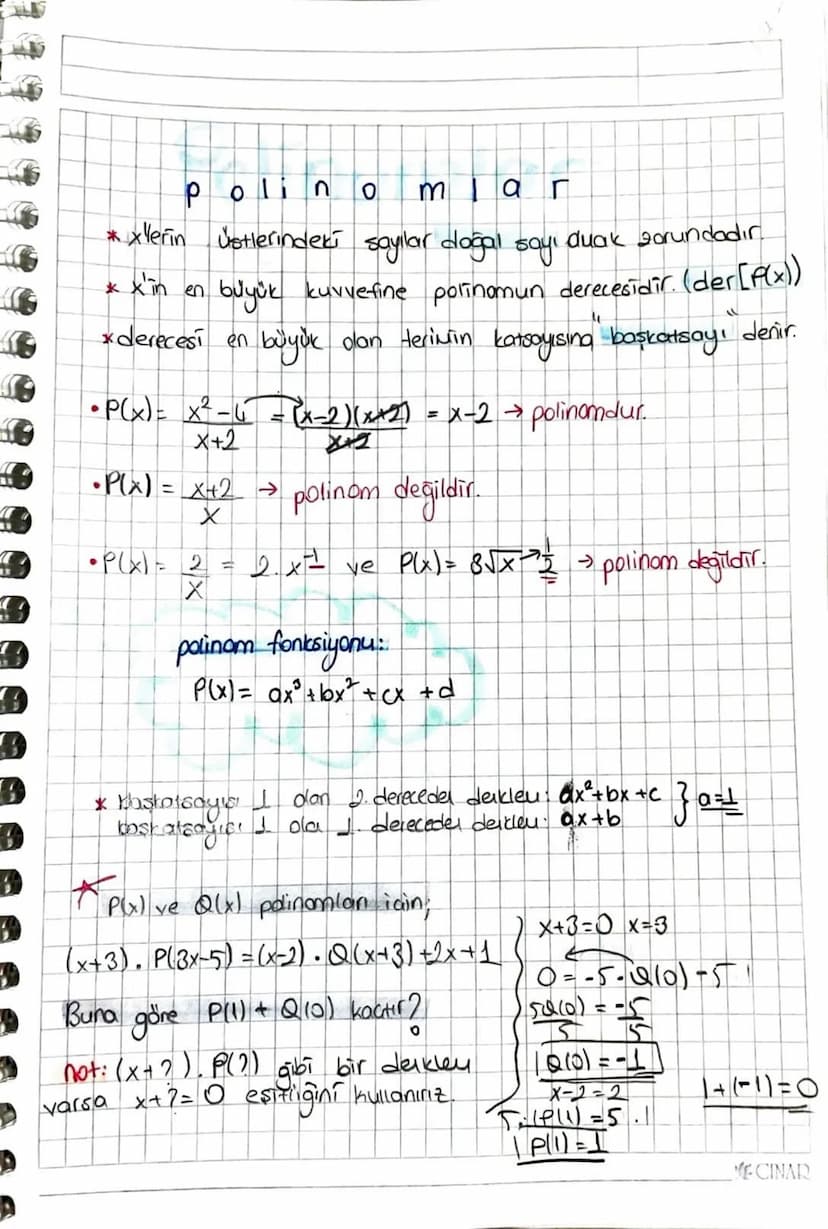 polinomlar
* x'lerin üstlerindeki sayılar doğal sayı olmak zorundadır.
* x'in en büyük kuvvetine polinomun derecesidir. (der[P(x))
* derecesi en büyük olan terimin katsayısına "başkatsayı" denir.
• P(x) = x²-4 / x+2 = (x-2)(x+2) / x+2 = x-2 → polinomdur.
• P(x) = x+2 / x → polinom değildir.
• P(x) = 2/x = 2.x⁻¹ ve P(x) = 8√x → 1/2 → polinom değildir.
polinom fonksiyonu:
P(x) = ax³+bx²+cx+d
* Başkatsayısı 1 olan 2. dereceden denklem: ax²+bx+c } a=1
başkatsayısı 1 olan 1. dereceden denklem: ax+b
P(x) ve Q(x) polinomları için;
(x+3).P(3x-5) = (x-2).Q(x+3)+2x+1
Buna göre P(1) + Q(0) kaçtır?
not: (x+?).P(?) gibi bir denklem
varsa x+?=0 eşitliğini kullanırız.
x+3=0 x=3
0=-5.Q(0)-5
5Q(0) = -5
5 5
Q(0) = -1
x-2=2
5.(P(1)=5.1
P(1)=1
1+(-1)=0
ÇINAR